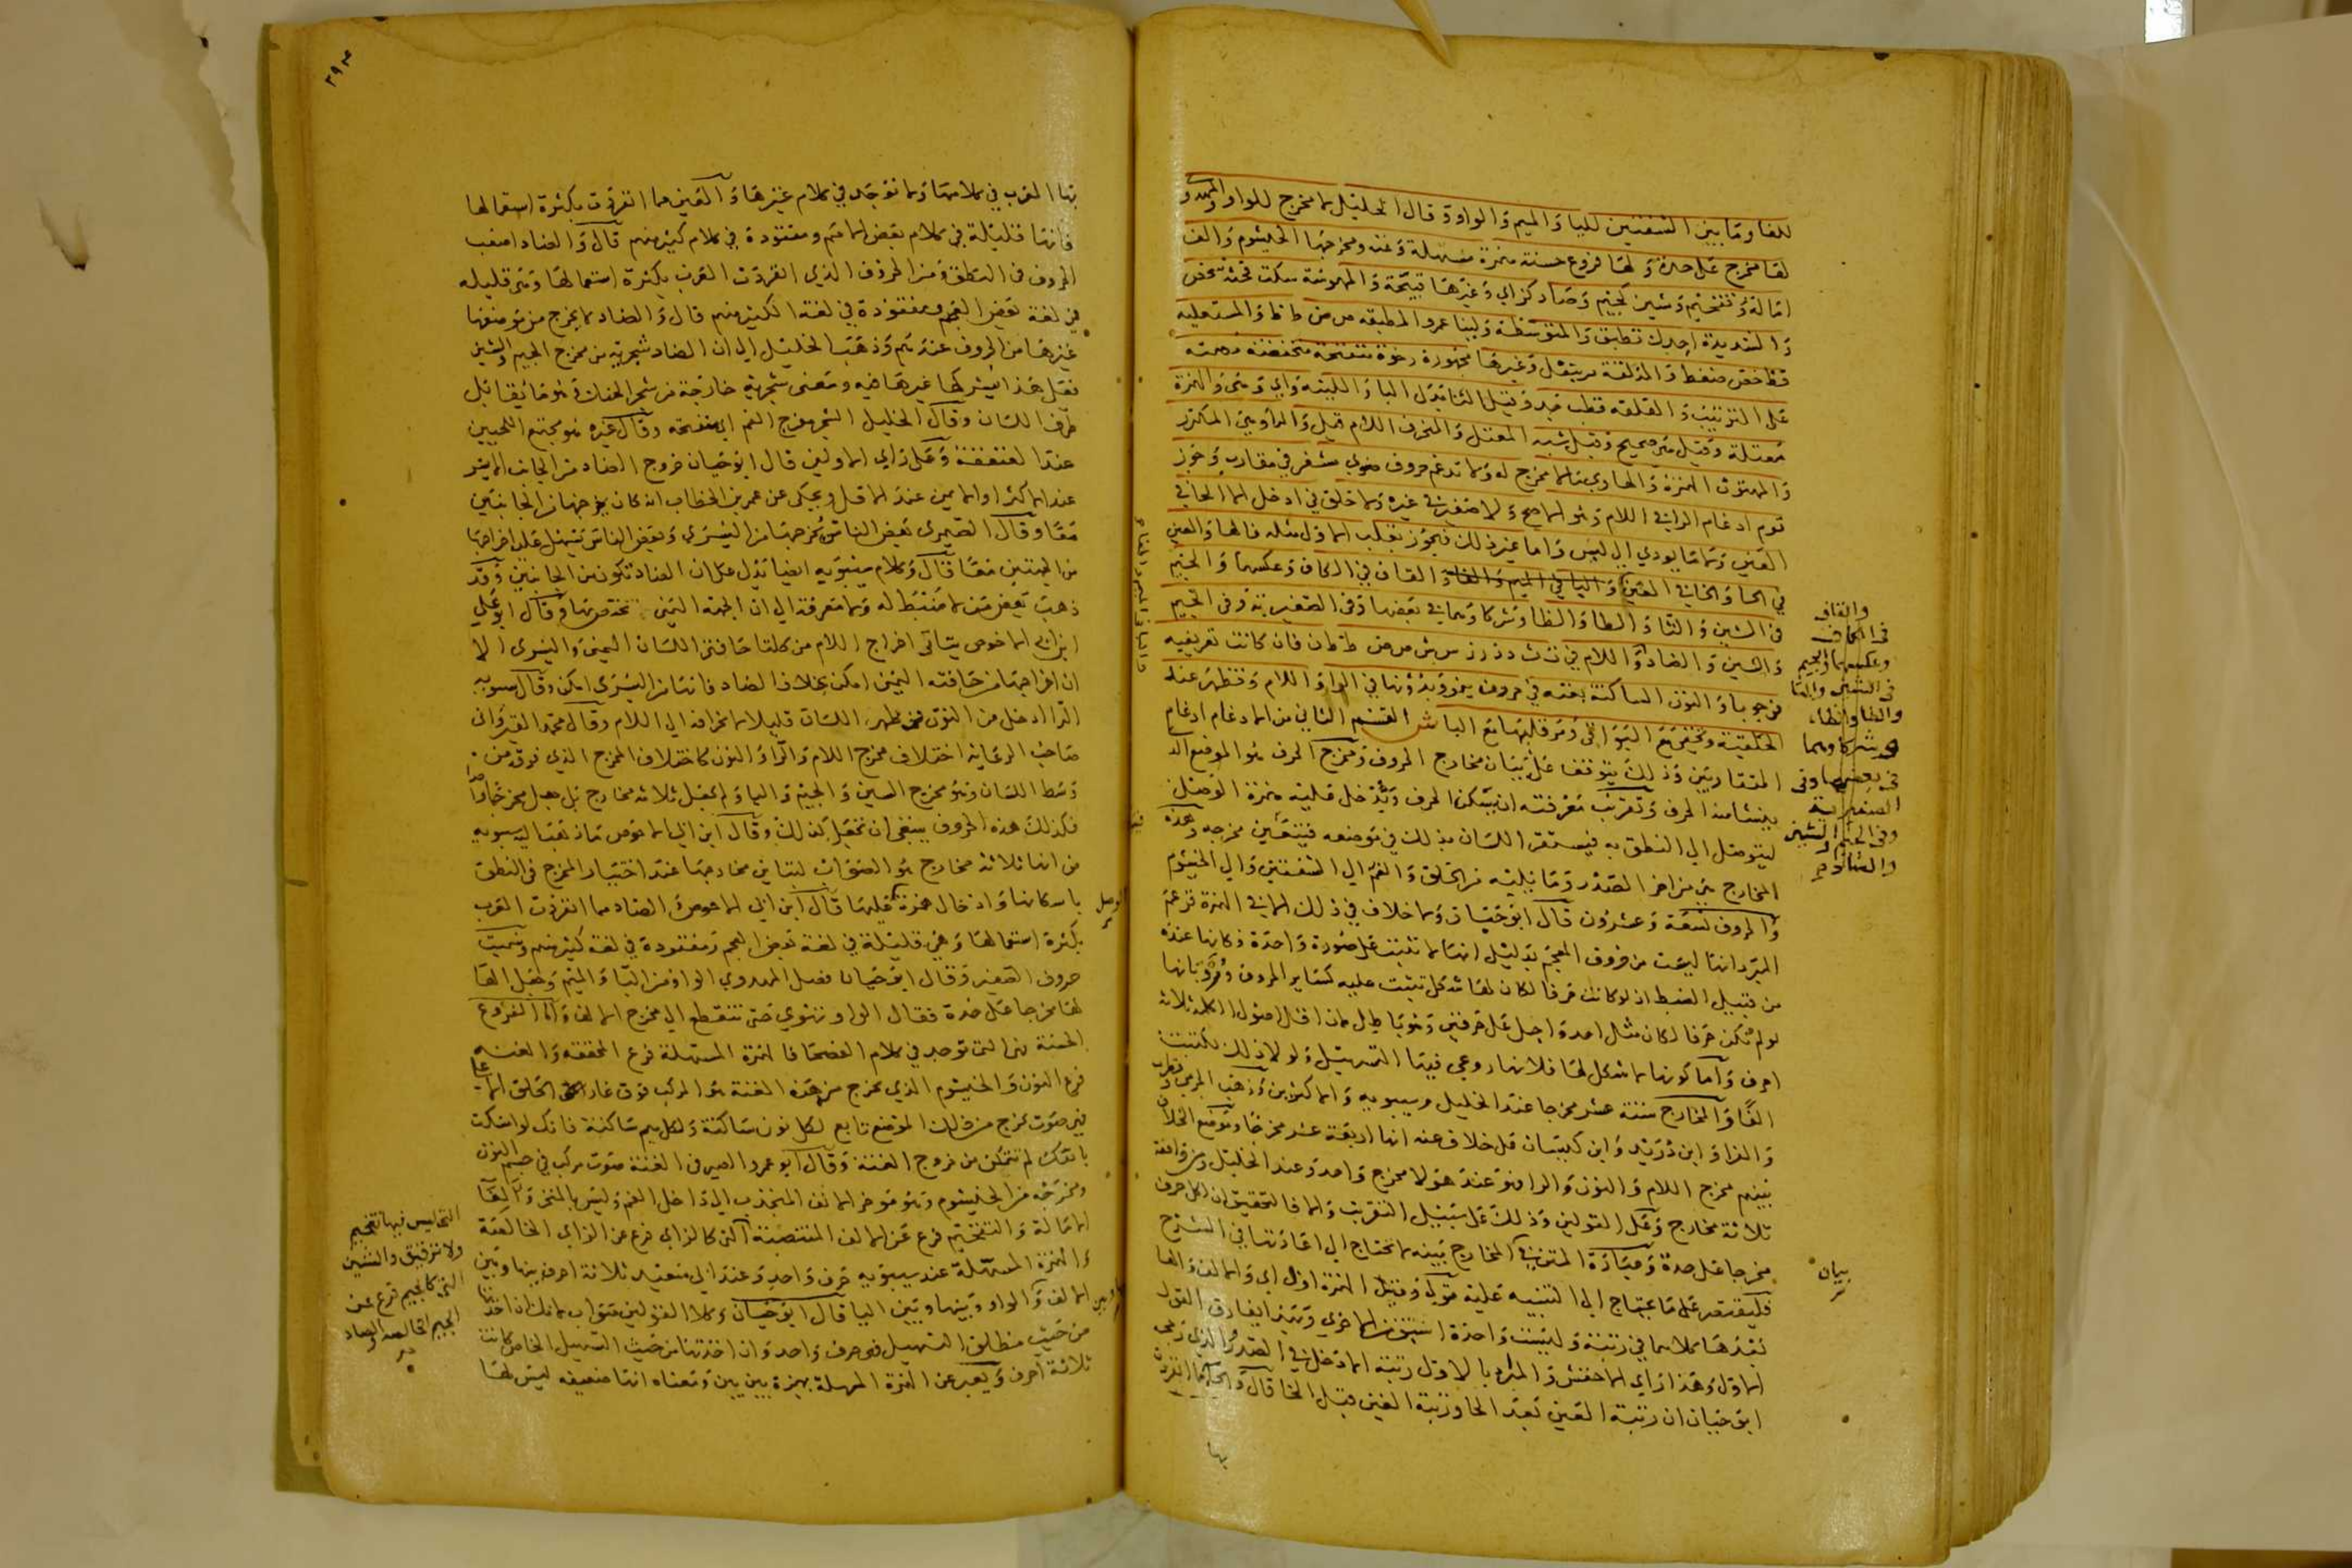 للفا وما بين الشفتين للبا والميم والواو وقال الخليل لا مخرج للواو
لها مخرج على حدة ولها فروع حسنة همزة مسهلة وغنه ومخرجها الخيشوم والف
امالة وتفخيم وشين كجيم وصاد كزاي وغيرها قبيحة والمهموسة سكت فحثه شخص
والشديدة اجدك تطبق والمتوسطة لينا عمرو المطبقه ص ض ط ظ والمستعليه
قظ خص ضغط والمذلقة مر بنفل وغيرها مجهورة رخوة منفتحة منخفضة مصمته
على الترتيب والقلقه قطب جد وقيل التا بدل البا واللينه واي وهي والهمزة
معتلة وقيل هي صحيح وقيل شبه المعتل والمنحرف اللام قيل والرا وهي المكرر
والمهتوت الهمزة والهاوي الالف لا مخرج له ولا تدغم حروف ضوي مشفر في مقارب وجوز
قوم ادغام الرا في اللام وهو الاصح ولا صفير في غيره ولا حلق في ادخل الا الحا في
العين ولا ما يودي الى لبس واما غير ذلك فيجوز بقلب الاول مثله فالها والعين
في الحا والخا في الغين والبا في الميم والفا والقاف في الكاف وعكسهما والجيم
في الشين والتا والطا والظا وشركاوهما في بعضها وفي الصغيرية وفي الجيم
والشين والضاد واللام في ت ث د ذ ر ز س ش ص ض ط ظ ن فان كانت تعريفيه
فوجوبا والنون الساكنة بغنه في حروف ينمو وبدونها في الرا واللام وتظهر عند
الحلقية وتخفى مع البواقي وتر قلبها مع البا ش القسم الثاني من الادغام ادغام
المتقاربين وذلك يتوقف على بيان مخارج الحروف ومخرج الحرف هو الموضع الذ
ينشا منه الحرف وتقريب معرفته ان يسكن الحرف وتدخل عليه همزة الوصل
ليتوصل الى النطق به فيستقر اللسان بذلك في موضعه فيتعين مخرجه وعدة
المخارج هي من اخر الصدر وما يليه من الحلق والفم الى الشفتين والى الخيشوم
والحروف تسعة وعشرون قال ابو حيان ولا خلاف في ذلك الا في الهمزة فزعم
المبرد انها ليست من حروف المعجم بدليل انها لا تثبت على صورة واحدة وكانها عنده
من قبيل الضبط اذ لو كانت حرفا لكان لها شكل تثبت عليه كسائر الحروف ورد بانها
لو لم تكن حرفا لكان مثل اخذ واجل على حرفين وهو باطل لان اقل اصول الكلمه ثلاثه
احرف واما كونها لا شكل لها فلانها روعي فيها التسهيل ولولا ذلك لكتبت
الفا والمخارج ستة عشر مخرجا عند الخليل وسيبويه والاكثرين وذهب الجرمي وقطرب
والفرا وابن دريد وابن كيسان على خلاف عنه انها اربعة عشر مخرجا وموضع الخلاف
بينهم مخرج اللام والنون والرا فهو عند هولا مخرج واحد وعند الخليل ومن وافقه
ثلاثة مخارج وعلى القولين وذلك على سبيل التقريب والا فالتحقيق ان لكل حرف
مخرجا على حدة وعبارة المتن في المخارج بينه لا تحتاج الى اعادتها في الشرح
فليقتصر على ما يحتاج الى التنبيه عليه وقيل الهمزة اول اي والالف والها
بعدها كلاهما في رتبة وليست واحدة اسبق من الاخرى
الاول وهذا راي الاخفش والمراد بالاول رتبة الادخل في الصدر
ابو حيان ان رتبة العين بعد الحا ورتبة الغين قبل الخا قال
بها
والقاف
في الكاف
وعكسهما والجيم
في الشين والتا
والطا والظاء
وشركاوهما
في بعضها وفي
الصغيرية
وفي الجيم والشين
والضاد
بيان
٢٩٣
بها العرب في كلامها ولا توجد في كلام غيرها والعين مما انفردت بكثرة استعمالها
فانها قليلة في كلام بعض الامم ومفقودة في كلام كثير منهم قال والضاد اصعب
الحروف في النطق ومن الحروف الذي انفردت العرب بكثرة استعمالها وهي قليله
في لغة بعض العجم ومفقودة في لغة الكثير منهم قال والضاد لا يخرج من موضعها
غيرها من الحروف عندهم وذهب الخليل الى ان الضاد شجرية من مخرج الجيم والشين
فعلى هذا يشركها غيرها فيه ومعنى شجرية خارجة من شجر الحنك وهو ما يقابل
طرف اللسان وقال الخليل الشجر مفرج الفم اي منفتحه وقال غيره هو مجتمع اللحيين
عند العنفقة وعلى راي الاولين قال ابو حيان خروج الضاد من الجانب الايسر
عند الاكثر او الايمن عند الاقل ويحكى عن عمر بن الخطاب انه كان يخرجها من الجانبين
معا وقال الصيمري بعض الناس يخرجها من اليسرى وبعض الناس يسهل عليه اخراجها
من الجهتين معا قال وكلام سيبويه ايضا يدل على ان الضاد تكون من الجانبين وقد
ذهب بعض من لا ضبط له ولا معرفة الى ان الجهة اليمنى تختص بها وقال ابو علي
ابن ابي الاحوص يتاتى اخراج اللام من كلتا حافتي اللسان اليمنى واليسرى الا
ان اخراجها من حافته اليمنى امكن بخلاف الضاد فانها من اليسرى امكن وقال سيبويه
الرا ادخل من النون في ظهر اللسان قليلا لانحرافه الى اللام وقال محمد القيرواني
صاحب الرعاية اختلاف مخرج اللام والرا والنون كاختلاف المخرج الذي فوقه من
وسط اللسان وهو مخرج الشين والجيم واليا ولم يجعل ثلاثة مخارج بل جعل مخرجا واحدا
فكذلك هذه الحروف ينبغي ان تجعل كذلك وقال ابن ابي الاحوص ما ذهب اليه سيبويه
من انها ثلاثة مخارج هو الصواب لتباين مخارجها عند اختبار المخرج في النطق
باسكانها وادخال همزة قبلها قال ابن ابي الاحوص والضاد مما انفردت العرب
بكثرة استعمالها وهي قليلة في لغة بعض العجم ومفقودة في لغة كثير منهم وسميت
حروف الصغير وقال ابو حيان فصل المهدوي الواو من البا والميم وجعل لها
لها مخرجا على حدة فقال الواو تهوي حتى تنقطع الى مخرج الالف واما الفروع
الحسنة هي التي توجد في كلام الفصحا فالهمزة المسهلة فرع المحققه والغنه
فرع النون والخيشوم الذي تخرج من هذه الغنة هو المركب فوق غار الحلق الاعلى
هي صوت يخرج من ذلك الموضع تابع لكل نون ساكنة ولكل ميم ساكنة فانك لو امسكت
بانفك لم تتمكن من خروج الغنة وقال ابو عمرو الصيرفي الغنة صوت مركب في جسم النون
ومخرجه من الخيشوم وهو موخر الانف المنجذب الى داخل الفم وليس بالمنخر والف
الامالة والتفخيم فرع عن الالف المنتصبة التي كالزاي فرع عن الزاي الخالصة
والهمزة المسهلة عند سيبويه حرف واحد وعند السيرافي ثلاثة احرف بينها وبين
الالف والواو وبينها وبين اليا قال ابو حيان وكلا القولين صواب لانك ان اخذتها
من حيث مطلق التسهيل فهو حرف واحد وان اخذتها من حيث التسهيل الخاص كانت
ثلاثة احرف ويعبر عن الهمزة المسهلة بهمزة بين بين ومعناه انها ضعيفه ليس لها
الوصل
التي ليس فيها تفخيم
ولا ترقيق والشين
التي كالجيم فرع عن
الجيم الخالصة والصاد